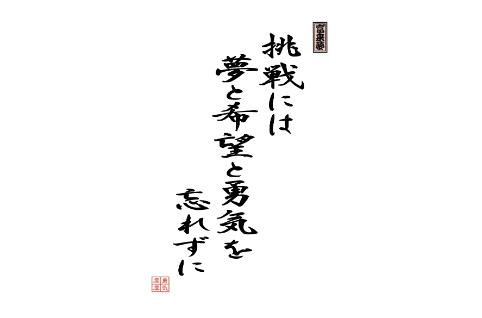 挑戦には
夢と希望と勇気を
忘れずに